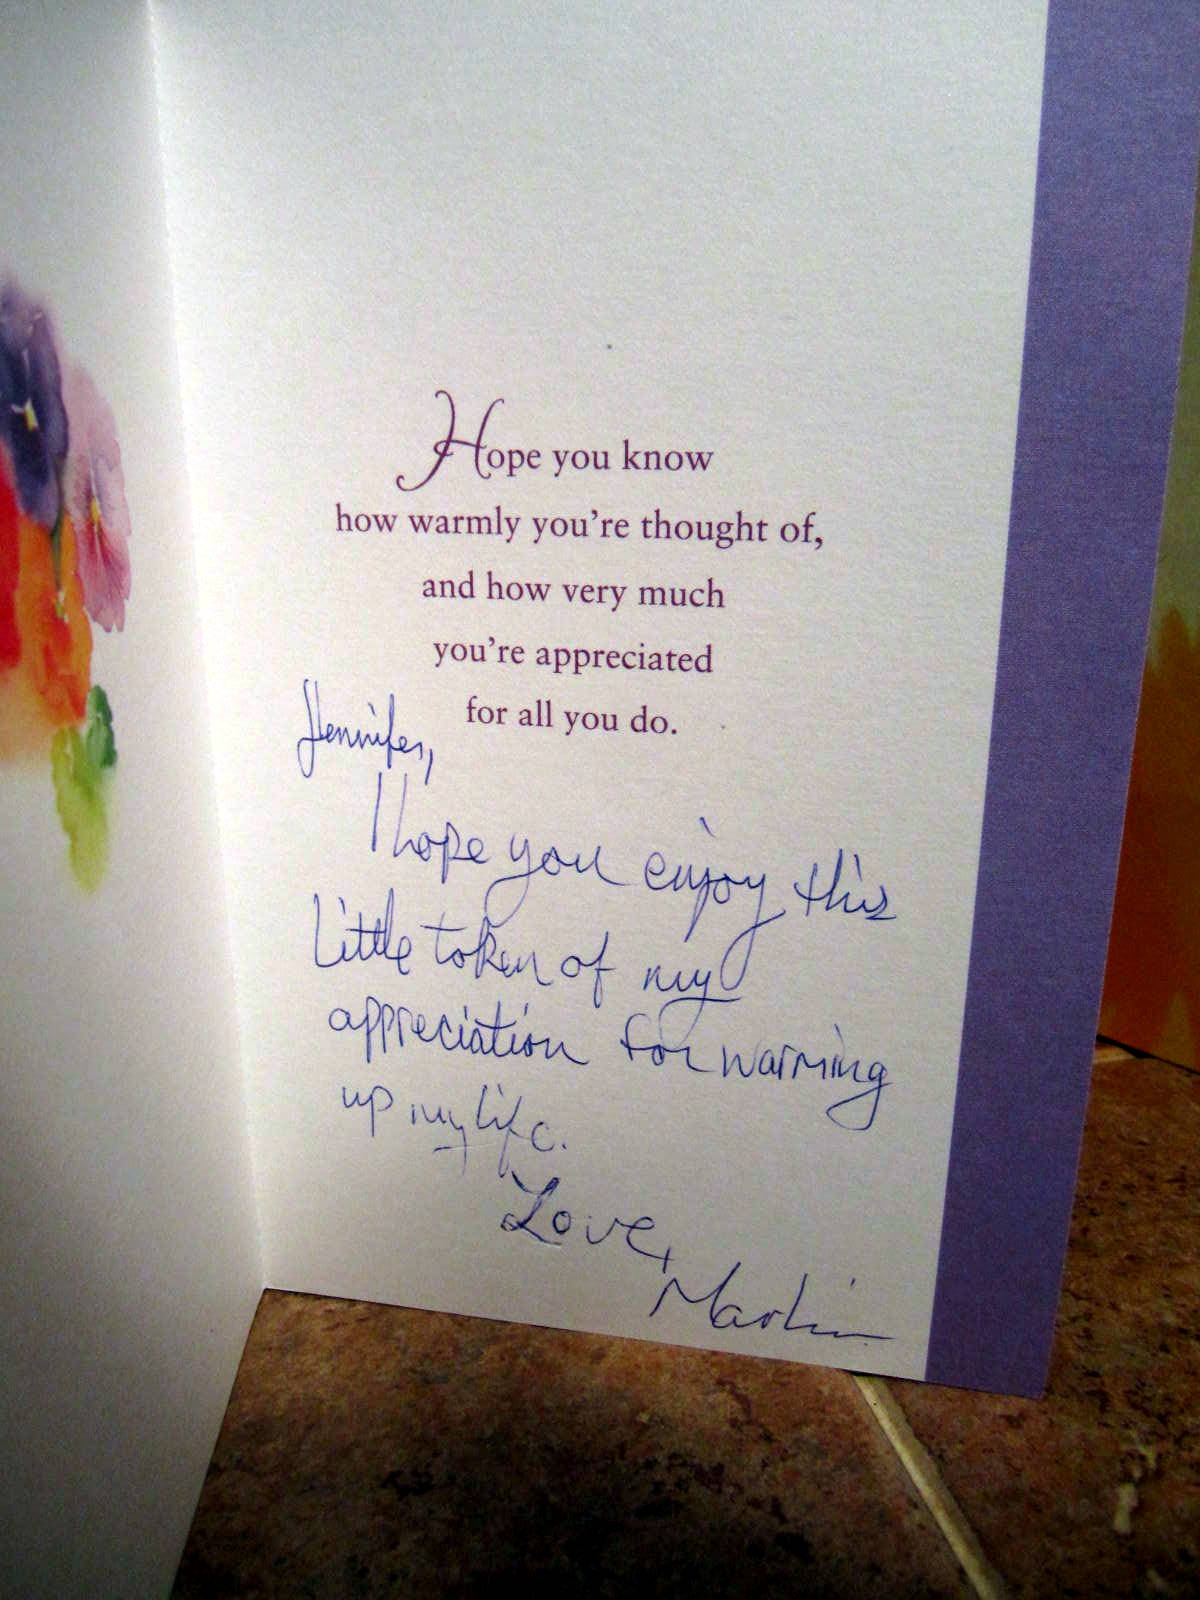 Hope you know
how warmly you're thought of,
and how very much
you're appreciated
for all you do.
Jennifer,
I hope you enjoy this
little token of my
appreciation for warming
up my life.
Love,
Martin